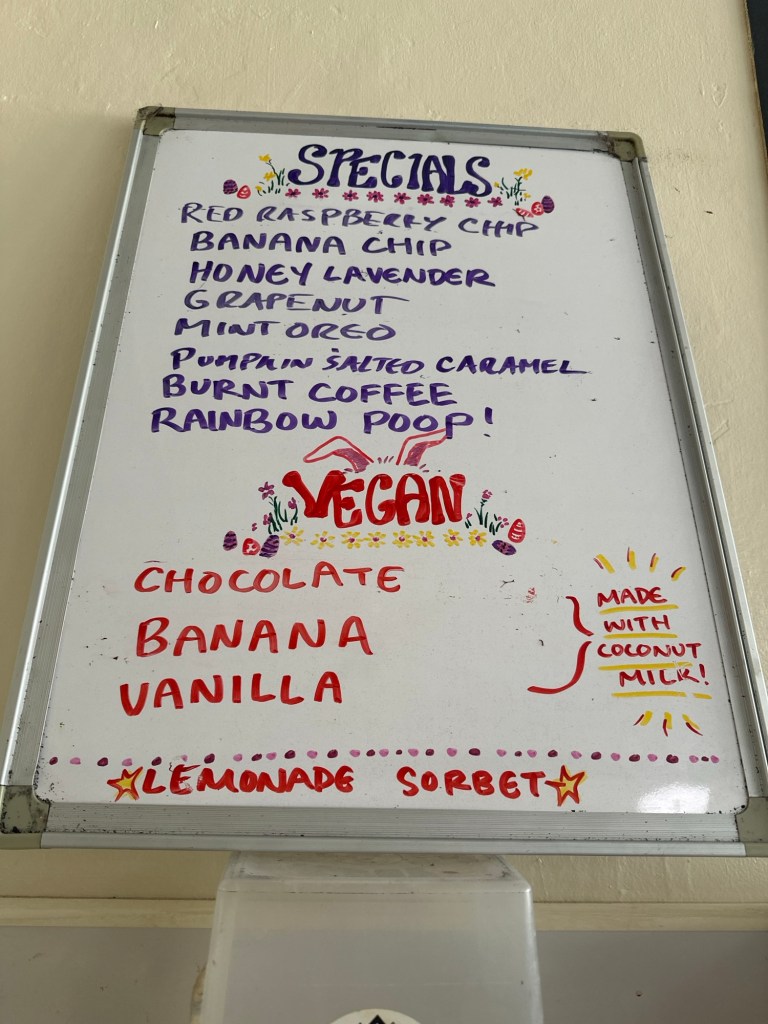 SPECIALS
RED RASPBERRY CHIP
BANANA CHIP
HONEY LAVENDER
GRAPENUT
MINT OREO
PUMPKIN SALTED CARAMEL
BURNT COFFEE
RAINBOW POOP!
VEGAN
CHOCOLATE
BANANA
VANILLA
MADE
WITH
COCONUT
MILK!
LEMONADE SORBET